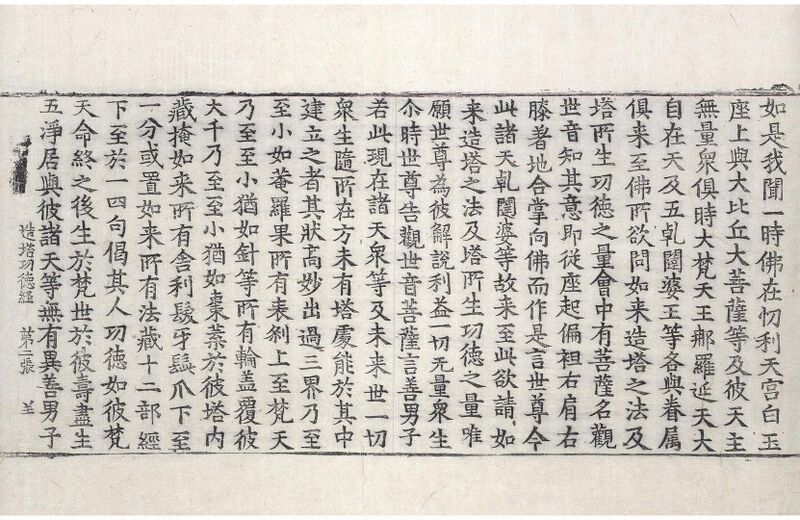 如是我聞一時佛在忉利天宮白玉
座上與大比丘大菩薩等及彼天主
無量衆俱時大梵天王那羅延天大
自在天及五乹闥婆王等各與眷属
俱来至佛所欲問如来造塔之法及
塔所生功徳之量會中有菩薩名觀
世音知其意即従座起偏袒右肩右
膝著地合掌向佛而作是言世尊今
此諸天乹闥婆等故来至此欲請如
来造塔之法及塔所生功徳之量唯
願世尊為彼解說利益一切无量衆生
尒時世尊告觀世音菩薩言善男子
若此現在諸天衆等及未来世一切
衆生隨所在方未有塔處能於其中
建立之者其狀髙妙出過三界乃至
至小如菴羅果所有表刹上至梵天
乃至至小猶如針等所有輪盖覆彼
大千乃至至小猶如棗葉於彼塔内
藏掩如来所有舎利髮牙髭爪下至
一分或置如来所有法藏十二部經
下至於一四句偈其人功徳如彼梵
天命終之後生於梵世於彼壽盡生
五淨居與彼諸天等無有異善男子
造塔功徳経 第二張